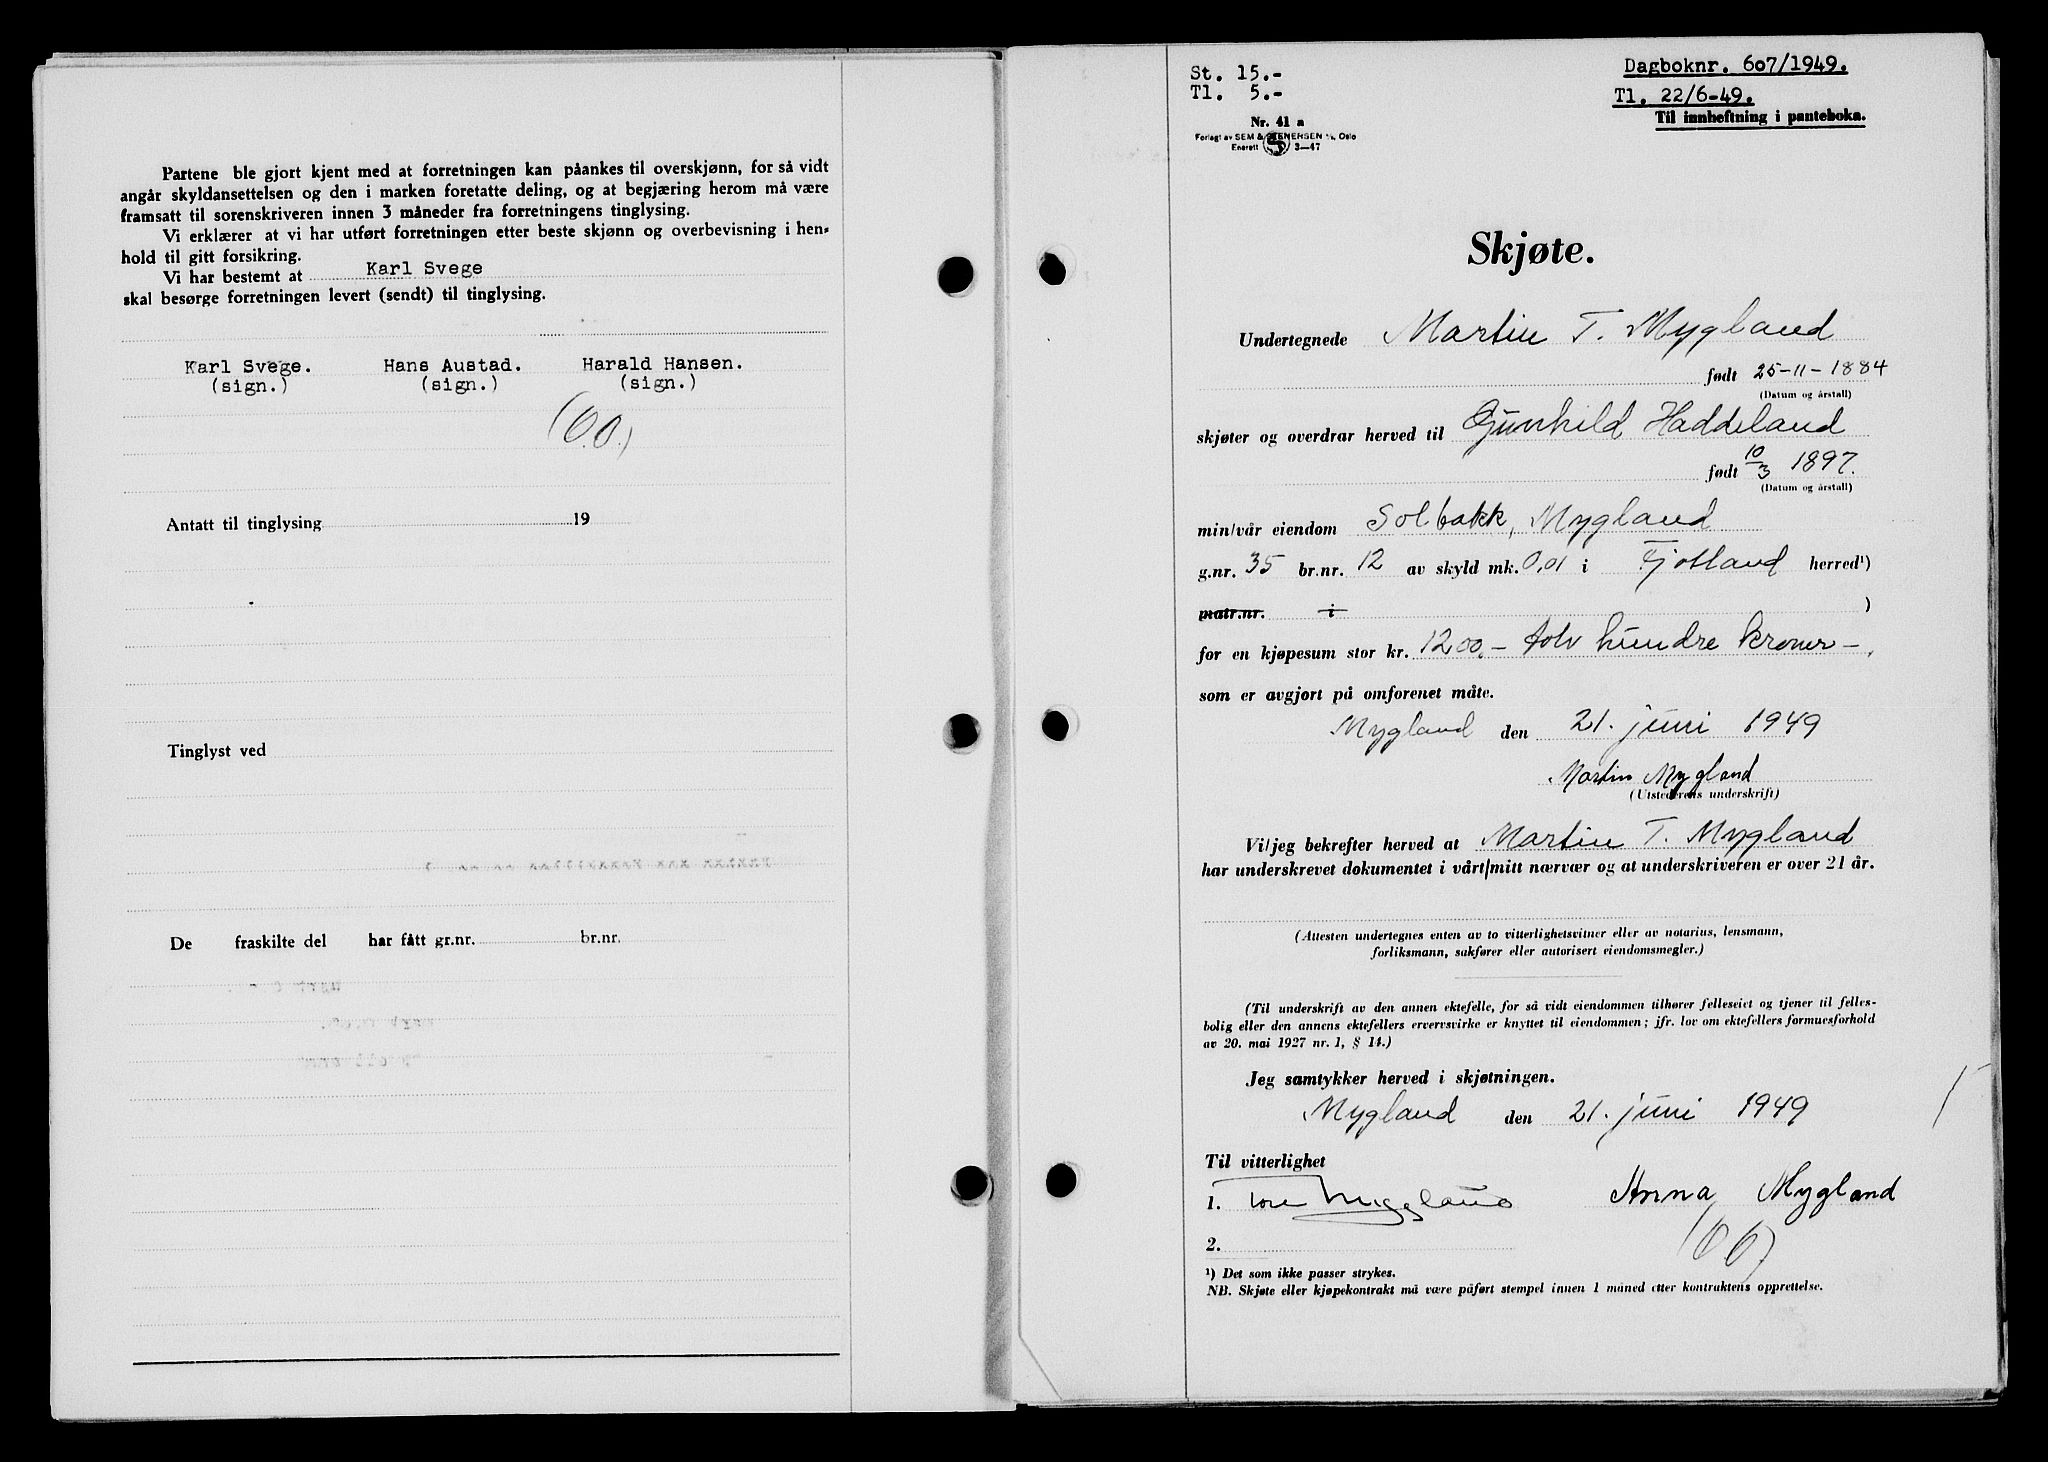 Partene ble gjort kjent med at forretningen kan påankes til overskjønn, for så vidt
angår skyldansettelsen og den i marken foretatte deling, og at begjæring herom må være
framsatt til sorenskriveren innen 3 måneder fra forretningens tinglysing.
Vi erklærer at vi har utført forretningen etter beste skjønn og overbevisning i hen-
hold til gitt forsikring.
Vi har bestemt at Karl Svege
skal besørge forretningen levert (sendt) til tinglysing.
Karl Svege. Hans Austad. Harald Hansen.
(sign.) (sign.) (sign.)
Antatt til tinglysing 19
Tinglyst ved
De fraskilte del har fått gr.nr. br.nr.
St. 15.-
Tl. 5.-
Nr. 41 a
Forlagt av SEM & STENERSEN A/S, Oslo
Enerett 3-47
Dagboknr. 607/1949.
Tl. 22/6-49.
Til innheftning i panteboka.
Skjøte.
Undertegnede Martin T. Mygland
født 25-11-1884
(Datum og årstall)
skjøter og overdrar herved til Gunhild Haddeland
født 10/3 1897.
(Datum og årstall)
min/vår eiendom Solbakk, Mygland
g.nr. 35 br.nr. 12 av skyld mk. 0,01 i Fjotland herred¹)
matr.nr. i )
for en kjøpesum stor kr. 1200,- tolv hundre kroner -,
som er avgjort på omforenet måte.
Mygland den 21. juni 1949
Martin Mygland
(Utstederens underskrift)
Vi/jeg bekrefter herved at Martin T. Mygland
har underskrevet dokumentet i vårt/mitt nærvær og at underskriveren er over 21 år.
(Attesten undertegnes enten av to vitterlighetsvitner eller av notarius, lensmann,
forliksmann, sakfører eller autorisert eiendomsmegler.)
(Til underskrift av den annen ektefelle, for så vidt eiendommen tilhører felleseiet og tjener til felles-
bolig eller den annens ektefellers ervervsvirke er knyttet til eiendommen; jfr. lov om ektefellers formuesforhold
av 20. mai 1927 nr. 1, § 14.)
Jeg samtykker herved i skjøtningen.
Mygland den 21. juni 1949
Til vitterlighet
1. Tore Mygland Anna Mygland
2.
¹) Det som ikke passer strykes.
NB. Skjøte eller kjøpekontrakt må være påført stempel innen 1 måned etter kontraktens opprettelse.